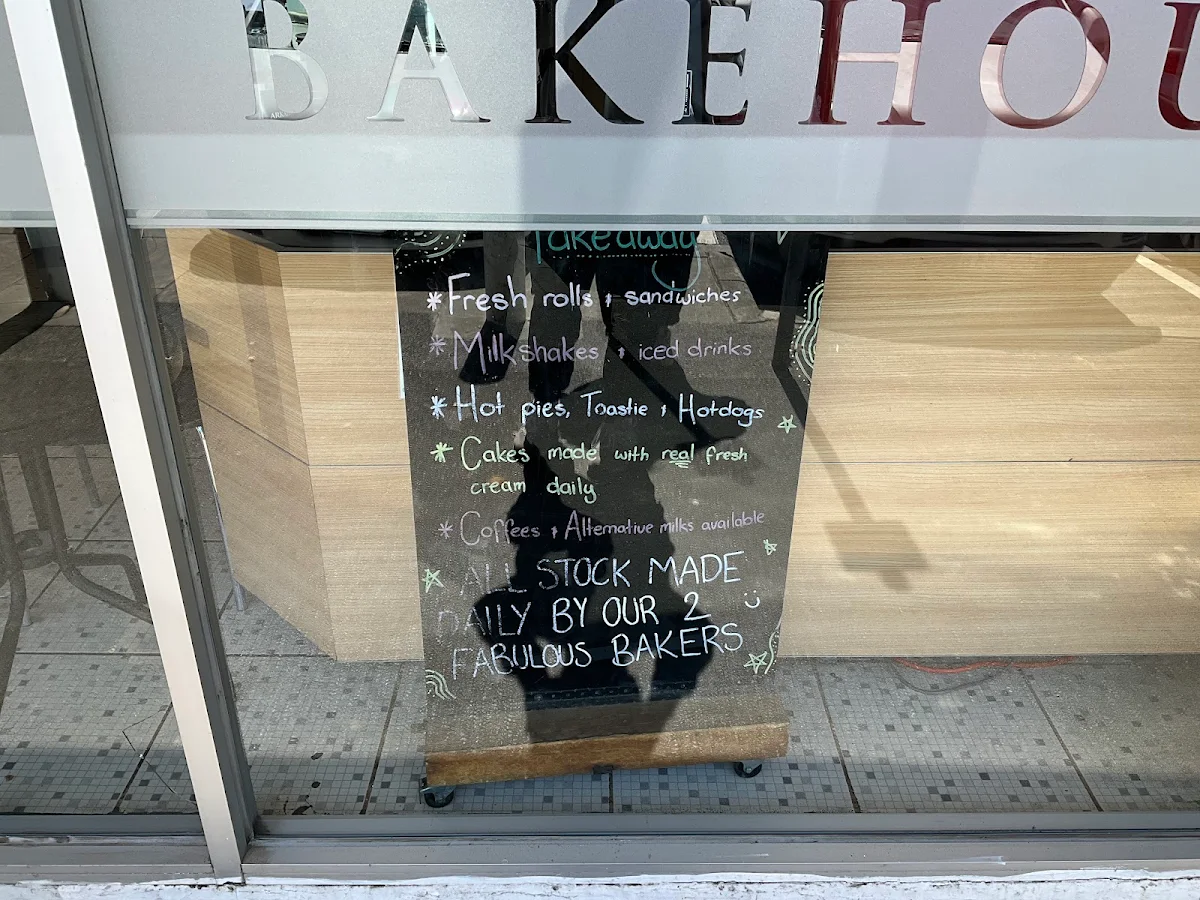 BAKEHOU
Takeaway
* Fresh rolls & sandwiches
* Milkshakes & iced drinks
* Hot pies, Toastie & Hotdogs
* Cakes made with real fresh
cream daily
* Coffees & Alternative milks available
ALL STOCK MADE
DAILY BY OUR 2
FABULOUS BAKERS